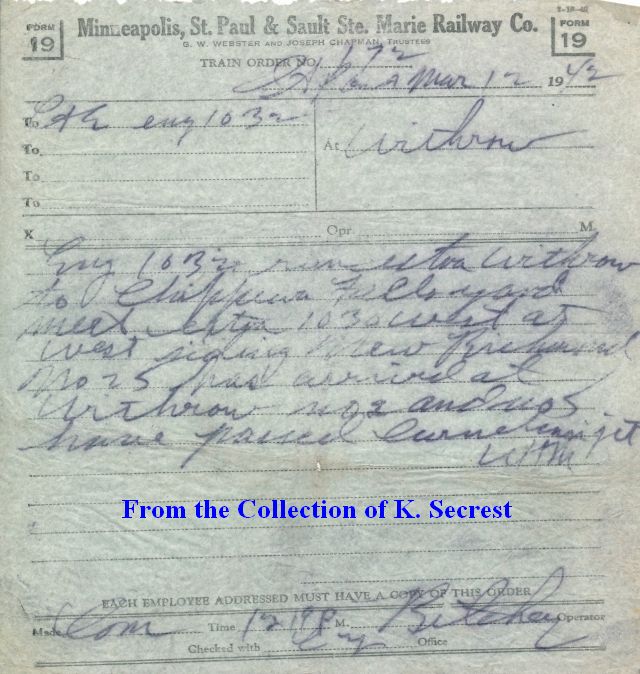 FORM 19
Minneapolis, St. Paul & Sault Ste. Marie Railway Co.
FORM 19
G. W. WEBSTER AND JOSEPH CHAPMAN, TRUSTEES
TRAIN ORDER NO. 172
Mar 12 1942
To C&E eng 1032
To
To
To
At Withrow
X Opr. M.
Eng 1032 run extra Withrow
to Chippewa Falls yard
meet extra 1030 west at
west siding New Richmond
No 25 has arrived at
Withrow no 2 and no 5
have passed Cardigan jct
WHM
From the Collection of K. Secrest
EACH EMPLOYEE ADDRESSED MUST HAVE A COPY OF THIS ORDER
Made Com Time 1219 P M. Operator
Checked with Office